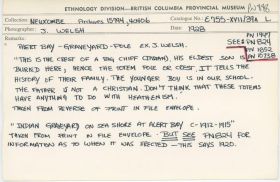 ETHNOLOGY DIVISION—BRITISH COLUMBIA PROVINCIAL MUSEUM
PN 778
Collection NEWCOMBE
Catalogue No.
Photographer J. WELSH
Date 1928
Remarks
SEE
PN 1852
ALERT BAY - GRAVEYARD - POLE EX. J. WELSH.
"THIS IS THE CREST OF A BIG CHIEF (INDIAN), HIS ELDEST SON IS
BURIED HERE, HENCE THE TOTEM POLE OR CREST. IT TELLS THE
HISTORY OF THEIR FAMILY. THE YOUNGER BOY IS IN OUR SCHOOL.
THE FATHER IS NOT A CHRISTIAN. DON'T THINK THAT THESE TOTEMS
HAVE ANYTHING TO DO WITH HEATHENISM.
TAKEN FROM REVERSE OF PRINT IN FILE ENVELOPE.
"INDIAN GRAVEYARD ON SEA SHORE AT ALERT BAY C-1912-1915"
TAKEN FROM PRINT IN FILE ENVELOPE. - BUT SEE PN 824 FOR
INFORMATION AS TO WHEN IT WAS ERECTED - THIS SAYS 1920.